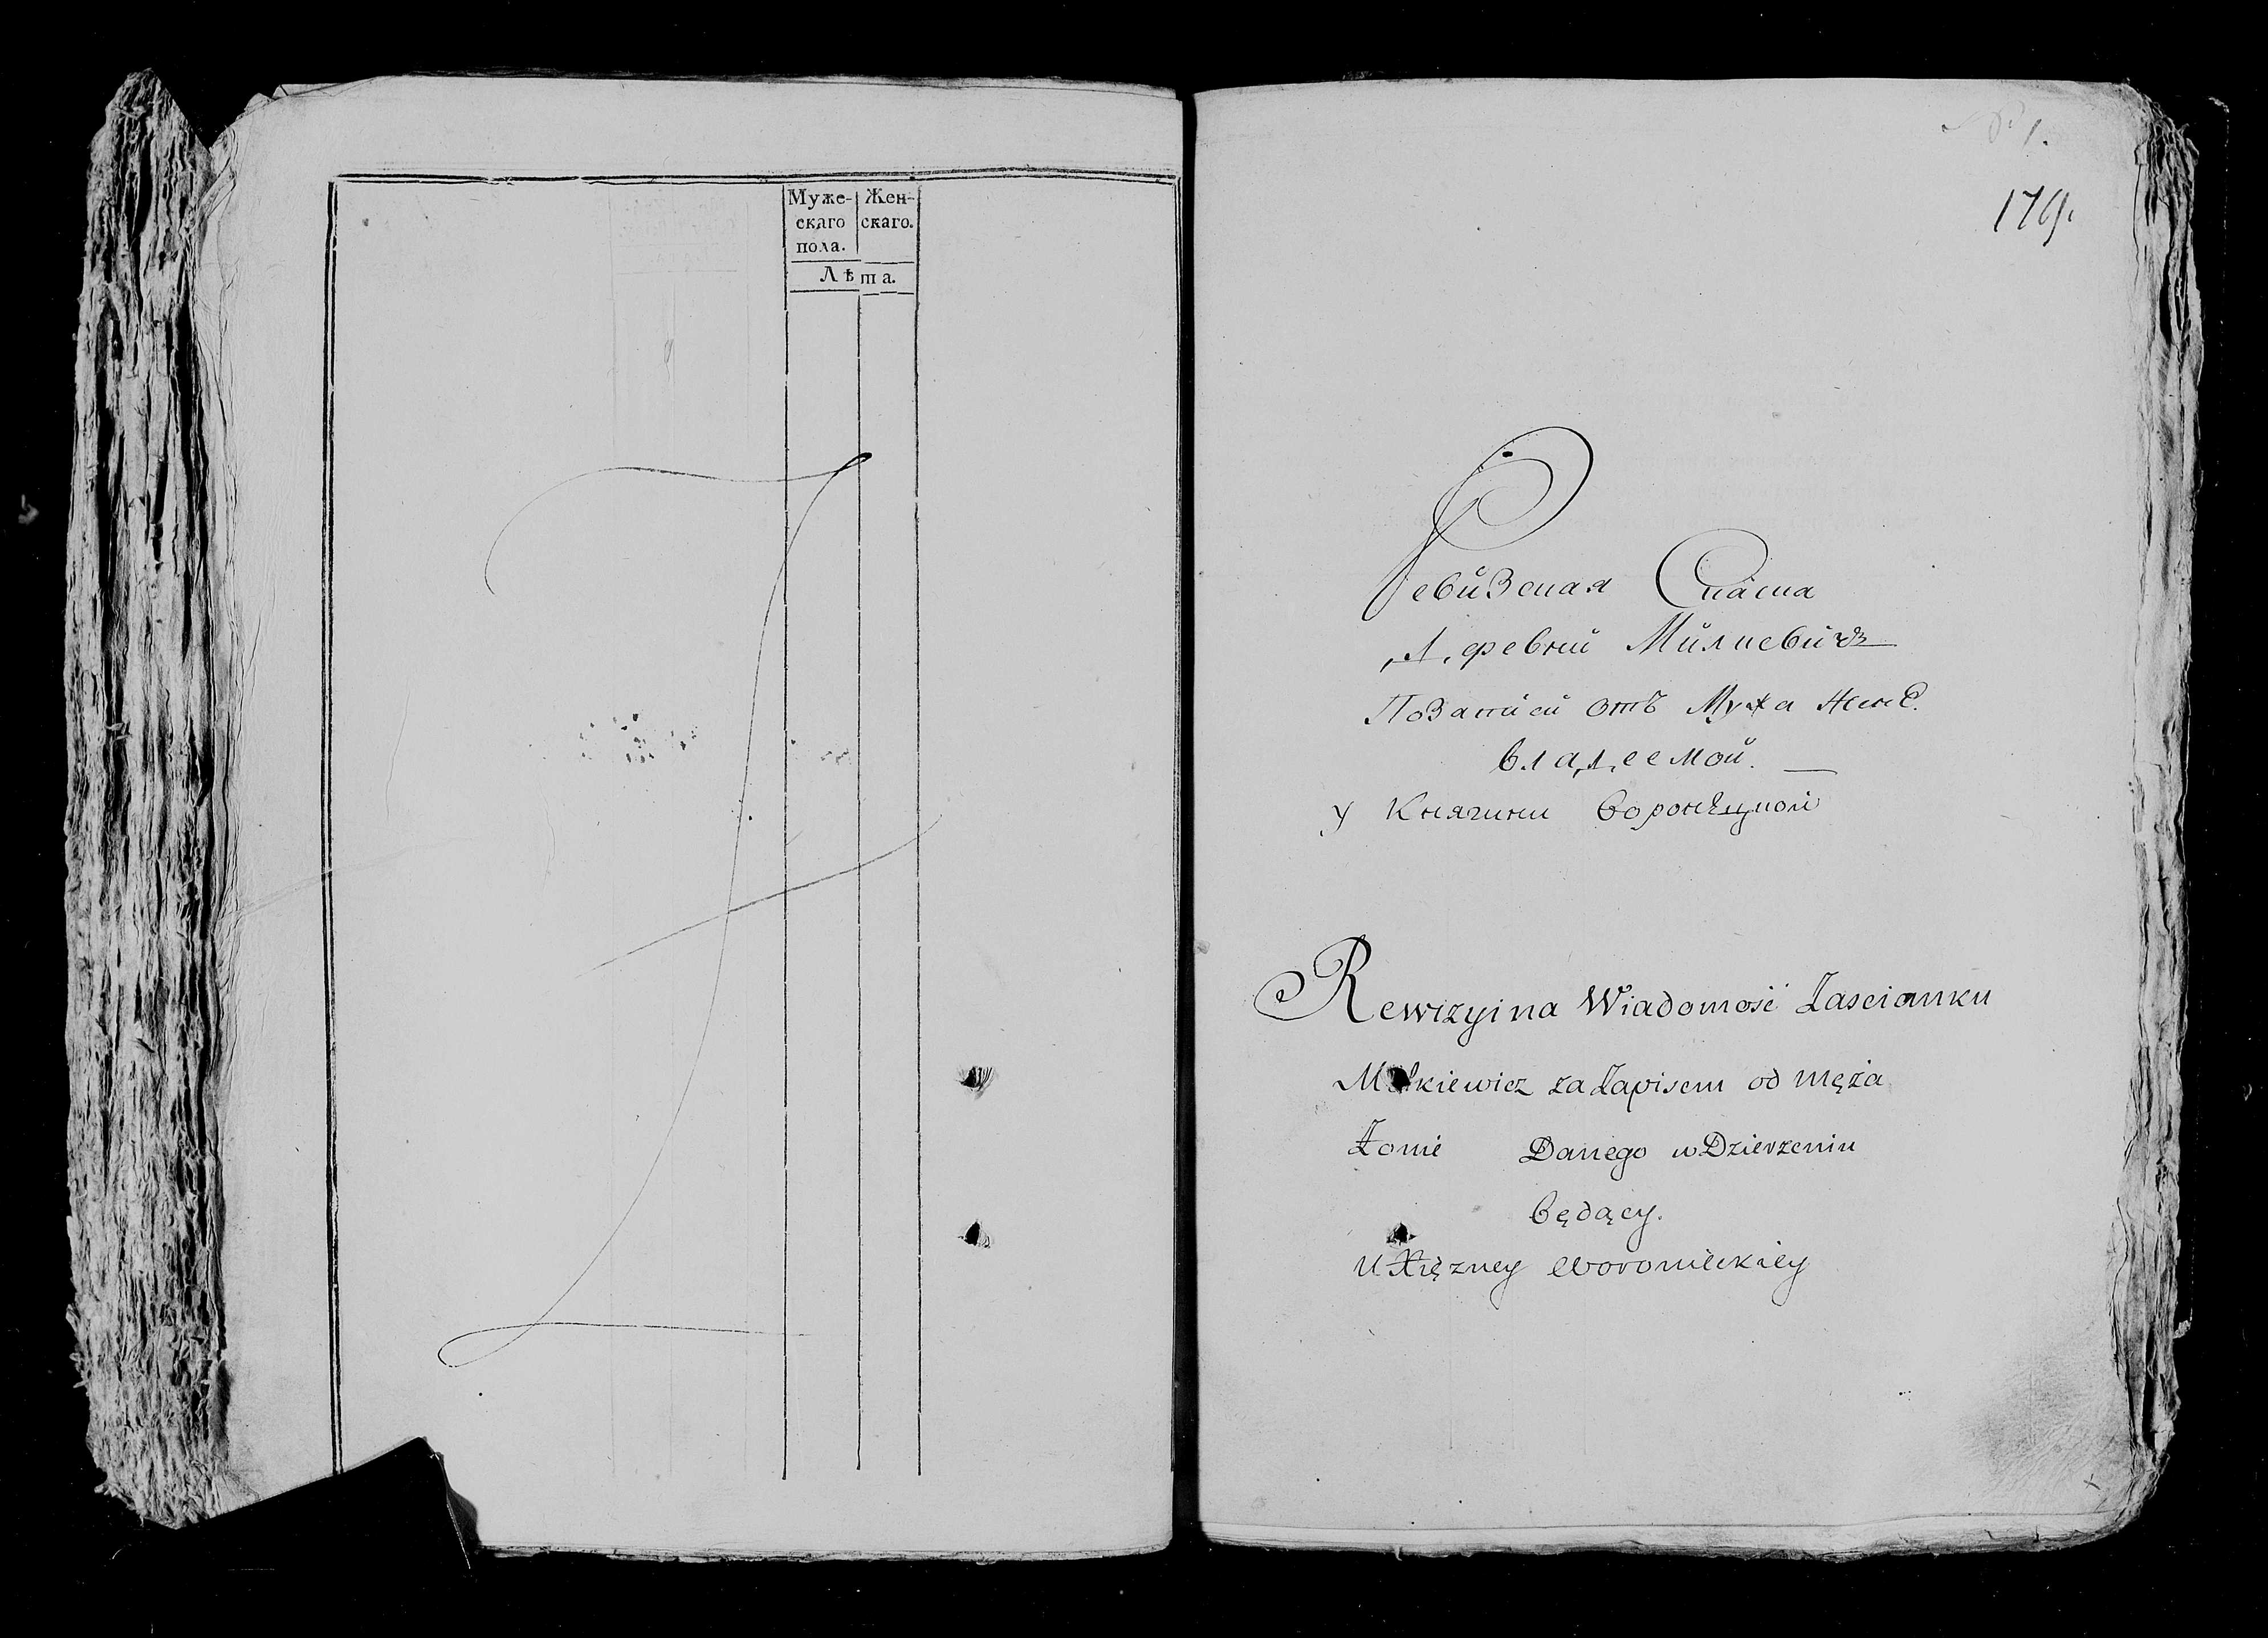 Муже-
скаго
пола.
Жен-
скаго.
Лѣта.
1.
179.
Ревизская Скаска
Деревни Милкевичъ
По Записи отъ Мужа Жене
владеемой.
у Княгини Воронецкой
Rewizyina Wiadomość Zascianku
Milkiewicz za Zapisem od męża
Żonie Danego w Dzierzeniu
będący.
u Xiężney Woronieckiey